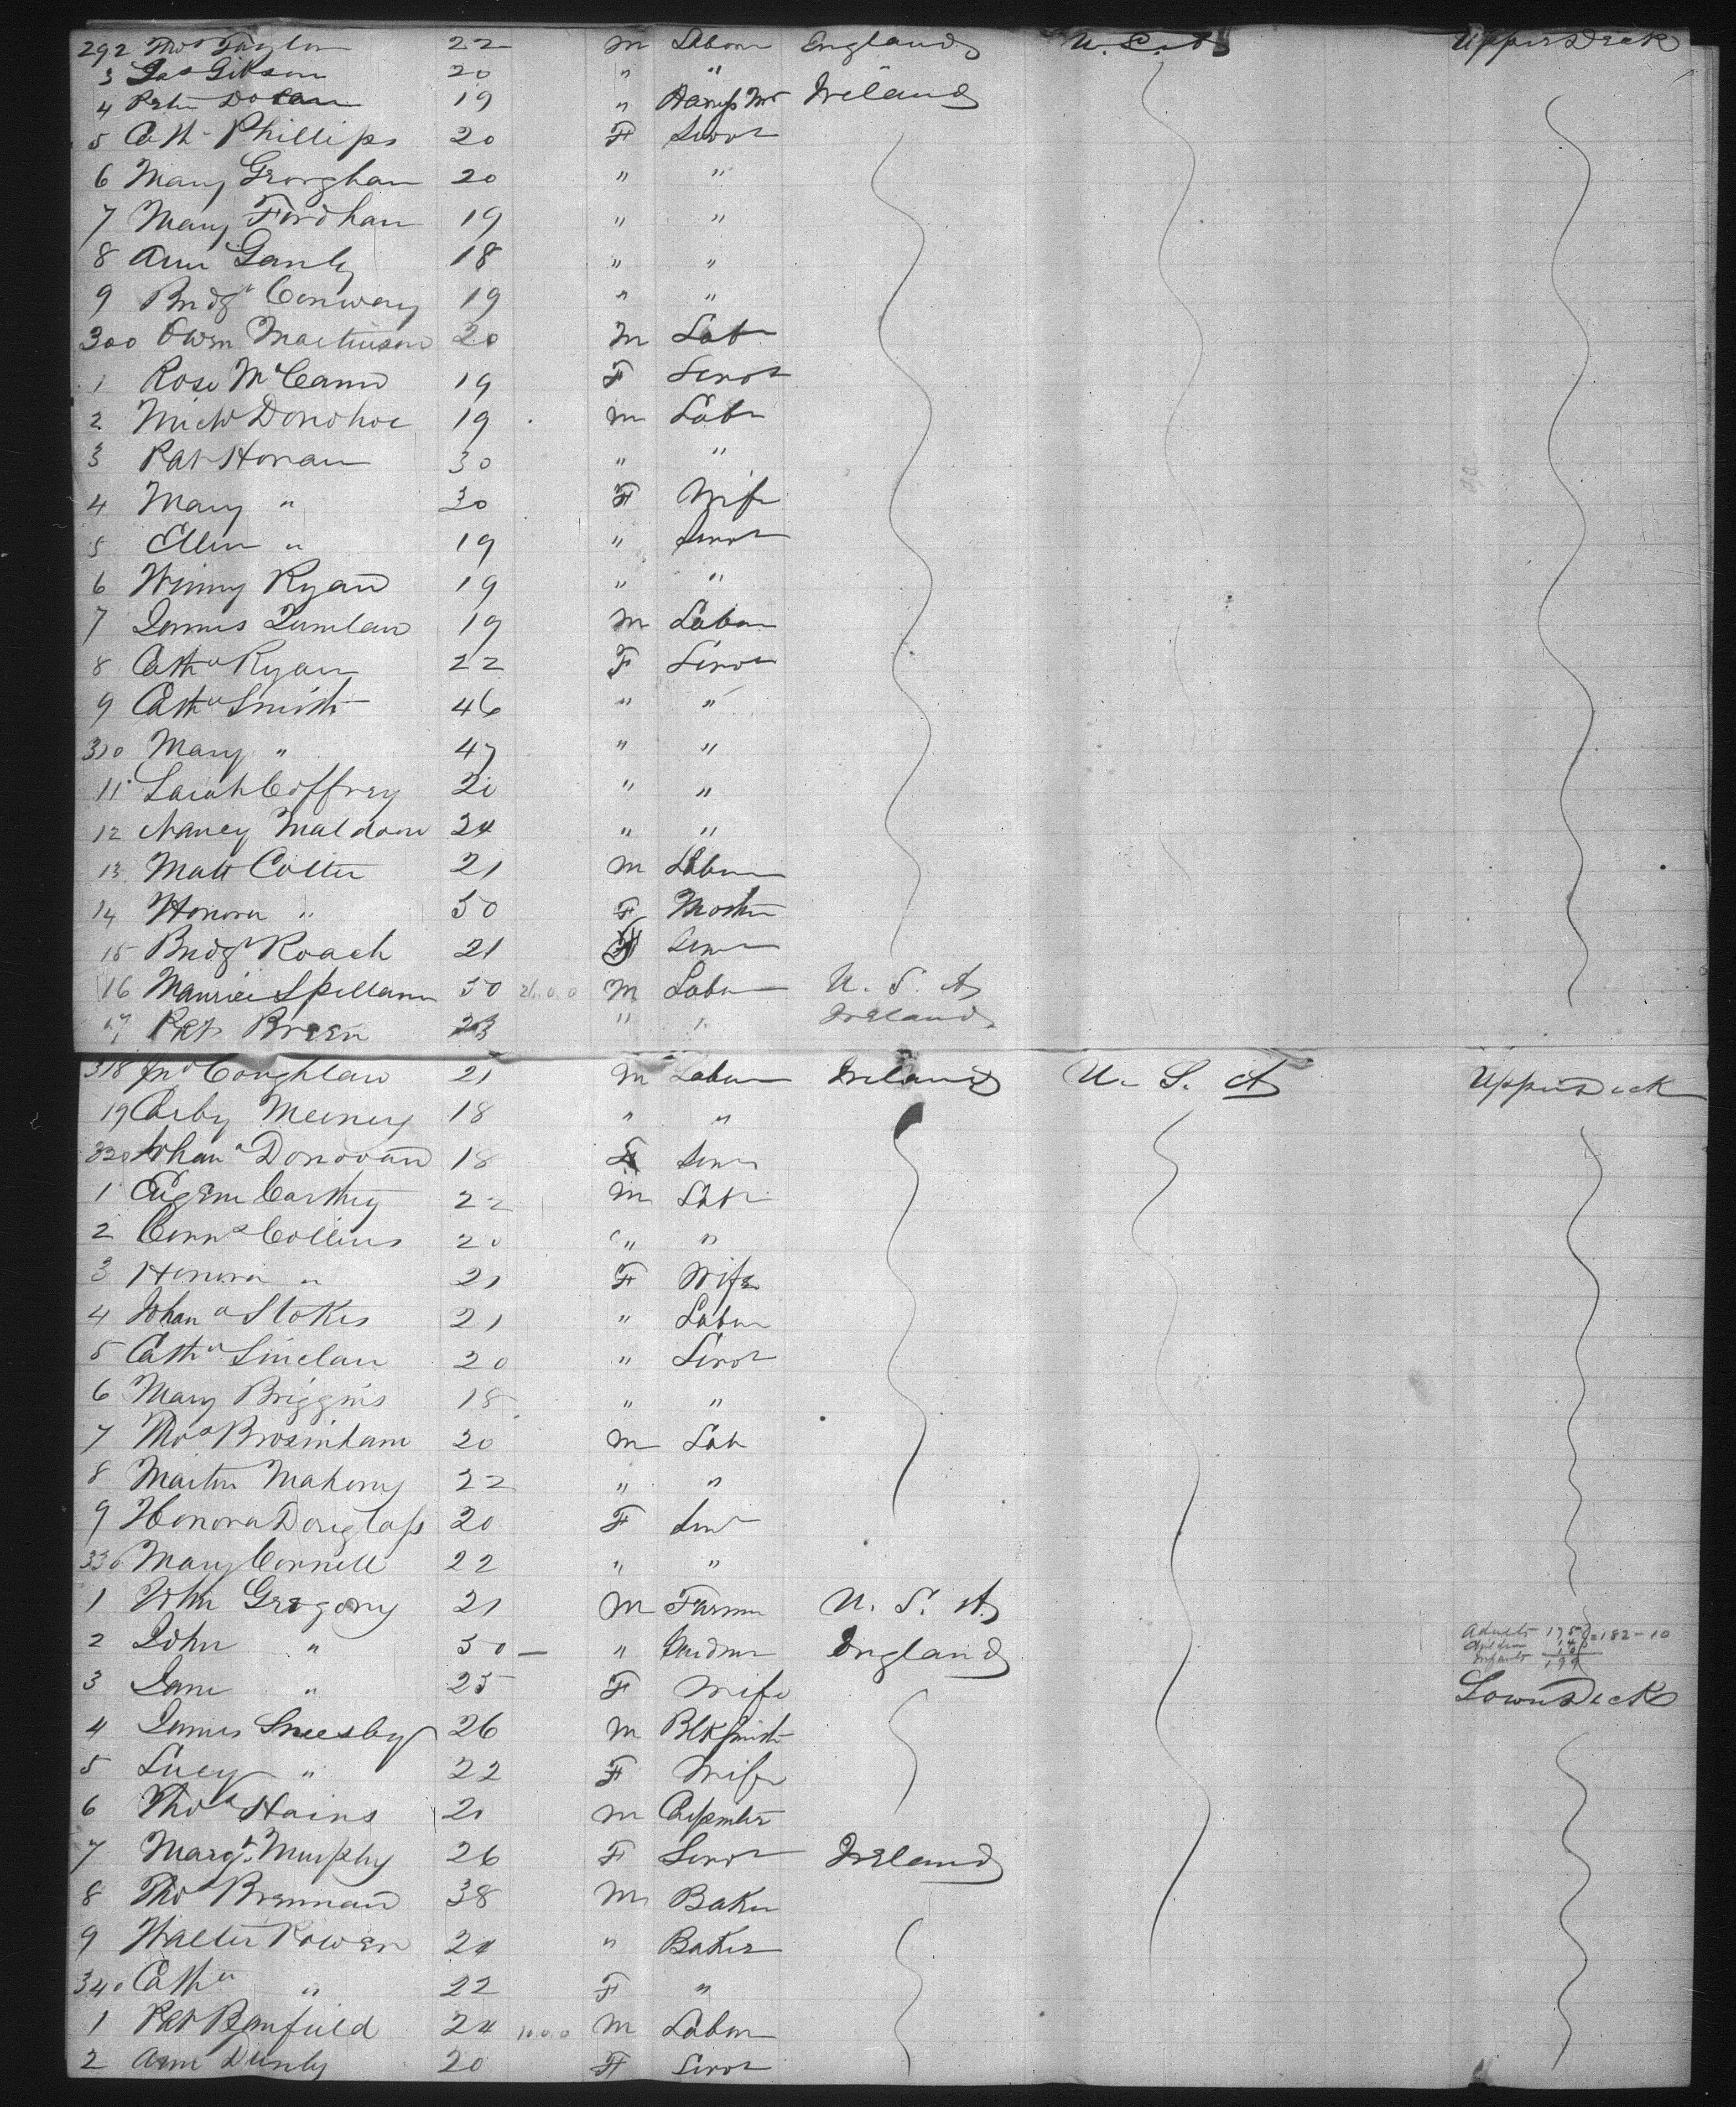 292 Thos Taylor 22 M Labour England U.S.A Upper Deck
3 Jas Gikson 20 " "
4 Peter Dolan 19 " Ireland
5 Cath Phillips 20 F Servt
6 Mary Groghan 20 " "
7 Mary Fordham 19 " "
8 Ann Ganly 18 " "
9 Bridgt Conway 19 " "
300 Owen Martinson 20 M Labr
1 Rose McCann 19 F Servt
2 Michl Donohoe 19 M Labr
3 Pat Honan 30 " "
4 Mary " 30 F Wife
5 Ellen " 19 " Servt
6 Winny Ryan 19 " "
7 James Quinlan 19 M Labour
8 Cathe Ryan 22 F Servt
9 Cathe Smith 46 " "
310 Mary " 47 " "
11 Sarah Coffrey 20 " "
12 Nancy Muldoon 24 " "
13 Matt Cotter 21 M Labour
14 Honora " 50 F Mother
15 Bridgt Roach 21 F Servt
16 Maurice Spillann 50 M Labour U.S.A
17 Pat Breen 23 " " Ireland
318 Jno Coughlan 21 M Labour Ireland U.S.A Upper Deck
19 Carby Meeney 18 " "
320 Johana Donovan 18 F Servt
1 Eugene Carthy 22 M Labr
2 Corns Collins 20 " "
3 Honora " 21 F Wife
4 Johana Stokes 21 " Labour
5 Cathe Sinclair 20 " Servt
6 Mary Briggins 18 " "
7 Thos Brosinham 20 M Labr
8 Martin Mahony 22 " "
9 Honora Douglass 20 F Servt
330 Mary Connell 22 " "
1 John Gregory 21 M Farmer U.S.A
2 John " 50 " England
Adults 175 = 182-10
Children 14
Infants 10
199
3 Jane " 25 F Wife Lower Deck
4 James Sneesby 26 M Blksmith
5 Lucy " 22 F Wife
6 Thos Hains 21 M Carpenter
7 Margt Murphy 26 F Servt Ireland
8 Thos Brennan 38 M Baker
9 Walter Rowen 24 " Baker
340 Cathe " 22 F "
1 Pat Banfield 24 10.0.0 M Labour
2 Ann Dunly 20 F Servt